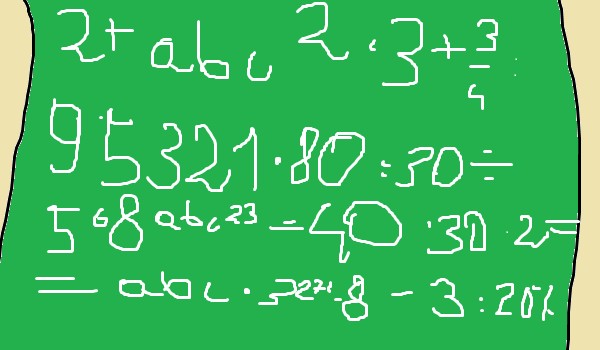 2+ abc² · 3 + 3/4
95321 · 80 : 50 ÷
5 · 8^abc23 - 40 : 30 · 2 =
= abc · 3^221 · 8 - 3 : 20%